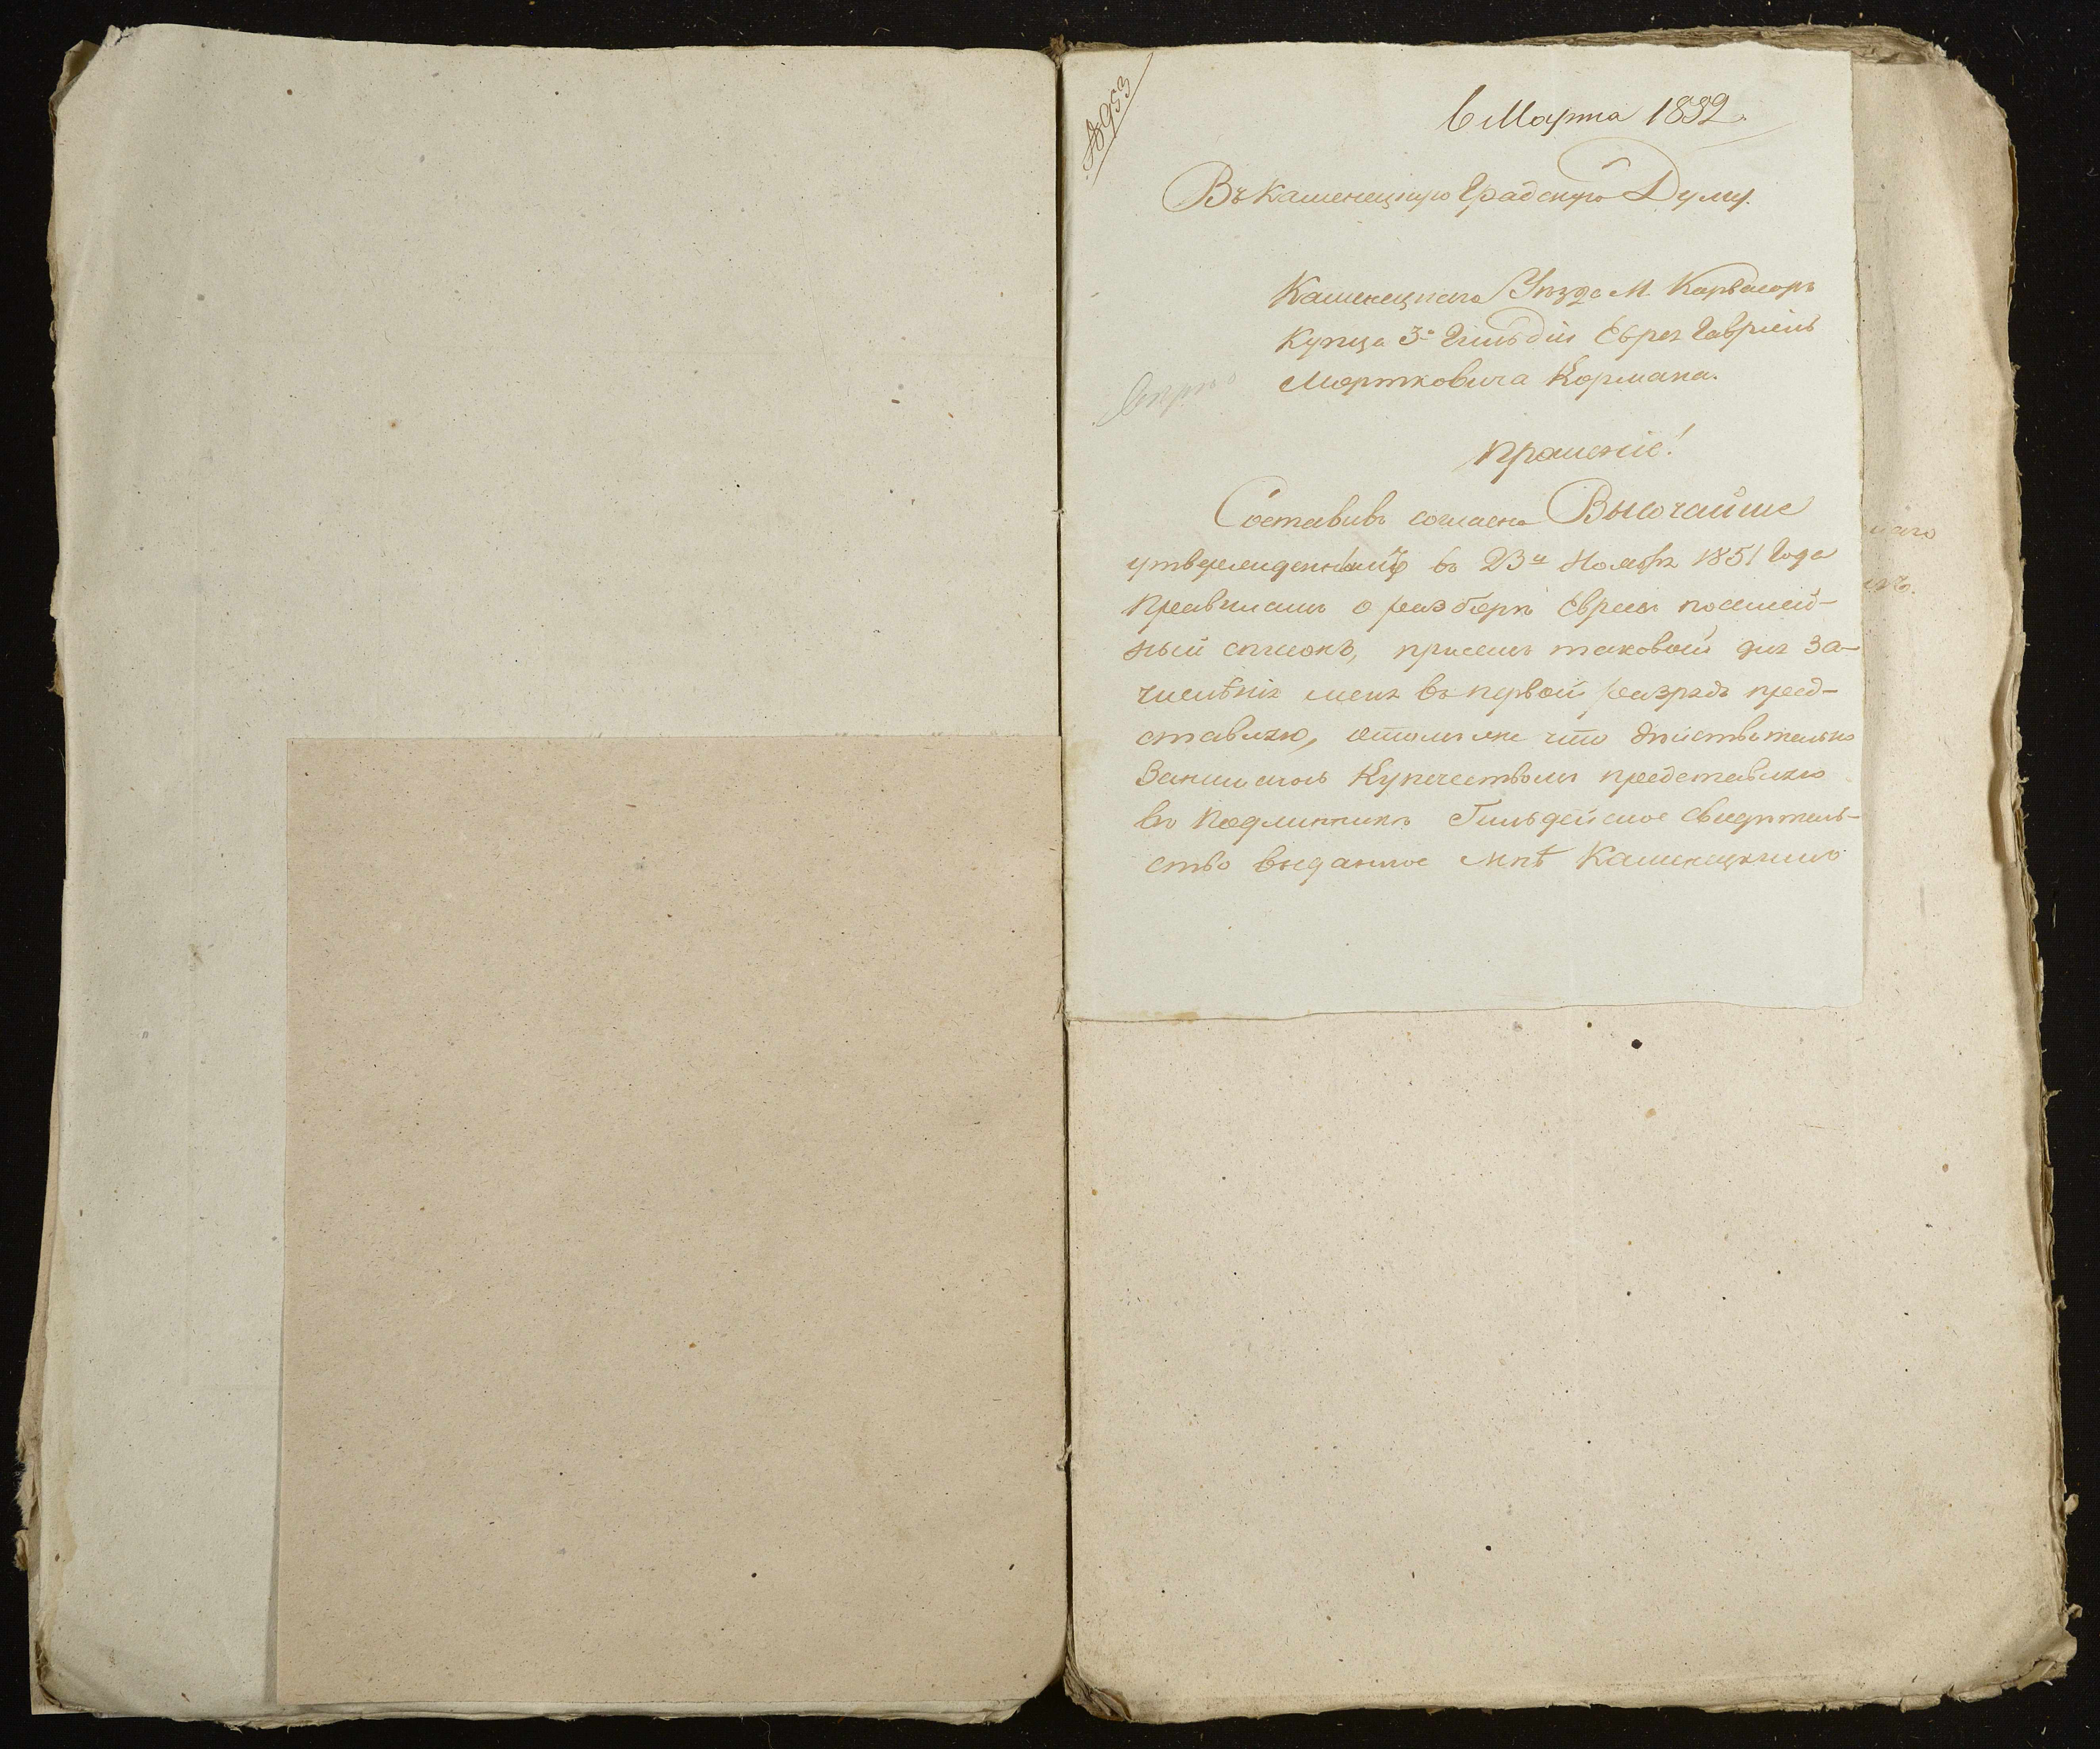 № 953
6 Марта 1852.
Въ Каменецкую Градскую Думу.
Каменецкаго Уѣзда М. Карвасоръ
Купца 3й Гильдіи Еврея Гавріель
Мортковича Кормана.
Прошеніе!
Составивъ согласно Высочайше
утвержденнымъ въ 23й Ноября 1851 Года
Правиламъ о разборѣ Евреевъ посемей-
ный списокъ, присемъ таковый для За-
численія меня въ первой разрядъ пред-
ставляю, отомъ же что действительно
Занимаюсь Купечествомъ представляю
въ Подлинникѣ Гильдейское свидѣтель-
ство выданное мнѣ Каменецкимъ